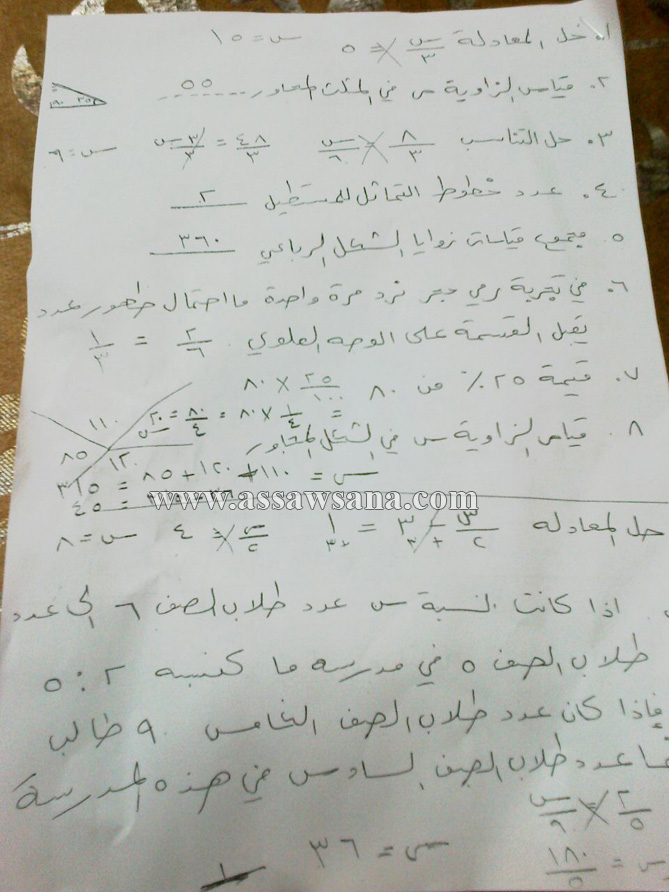 ١. حل المعادلة س/٣ = ٥ س = ١٥
٢. قياس الزاوية س في المثلث المجاور ..... ٥٥ .....
٣. حل التناسب ٨/٣ = س/٦ ٤٨/٣ = ٣س/٣ س = ٩
٤. عدد خطوط التماثل للمستطيل ٢
٥. مجموع قياسات زوايا الشكل الرباعي ٣٦٠
٦. في تجربة رمي حجر نرد مرة واحدة ما احتمال ظهور عدد
يقبل القسمة على الوجه العلوي ٢/٦ = ١/٣
٧. قيمة ٢٥٪ من ٨٠ ٢٥/١٠٠ × ٨٠
= ١/٤ × ٨٠ = ٨٠/٤ = ٢٠
٨. قياس الزاوية س في الشكل المجاور
١١٠ س ٨٥ ١٢٠
س = ١١٠ + ١٢٠ + ٨٥ = ٣١٥
= ٤٥
www.assawsana.com
حل المعادلة س/٢ - ٣ = ١ س/٢ = ٤ س = ٨
اذا كانت نسبة س عدد طلاب الصف ٦ الى عدد
طلاب الصف ٥ في مدرسة ما كنسبة ٢ : ٥
فإذا كان عدد طلاب الصف الخامس ٩٠ طالب
ما عدد طلاب الصف السادس في هذه المدرسة
٢/٥ = س/٩
س = ١٨٠/٥ س = ٣٦
١